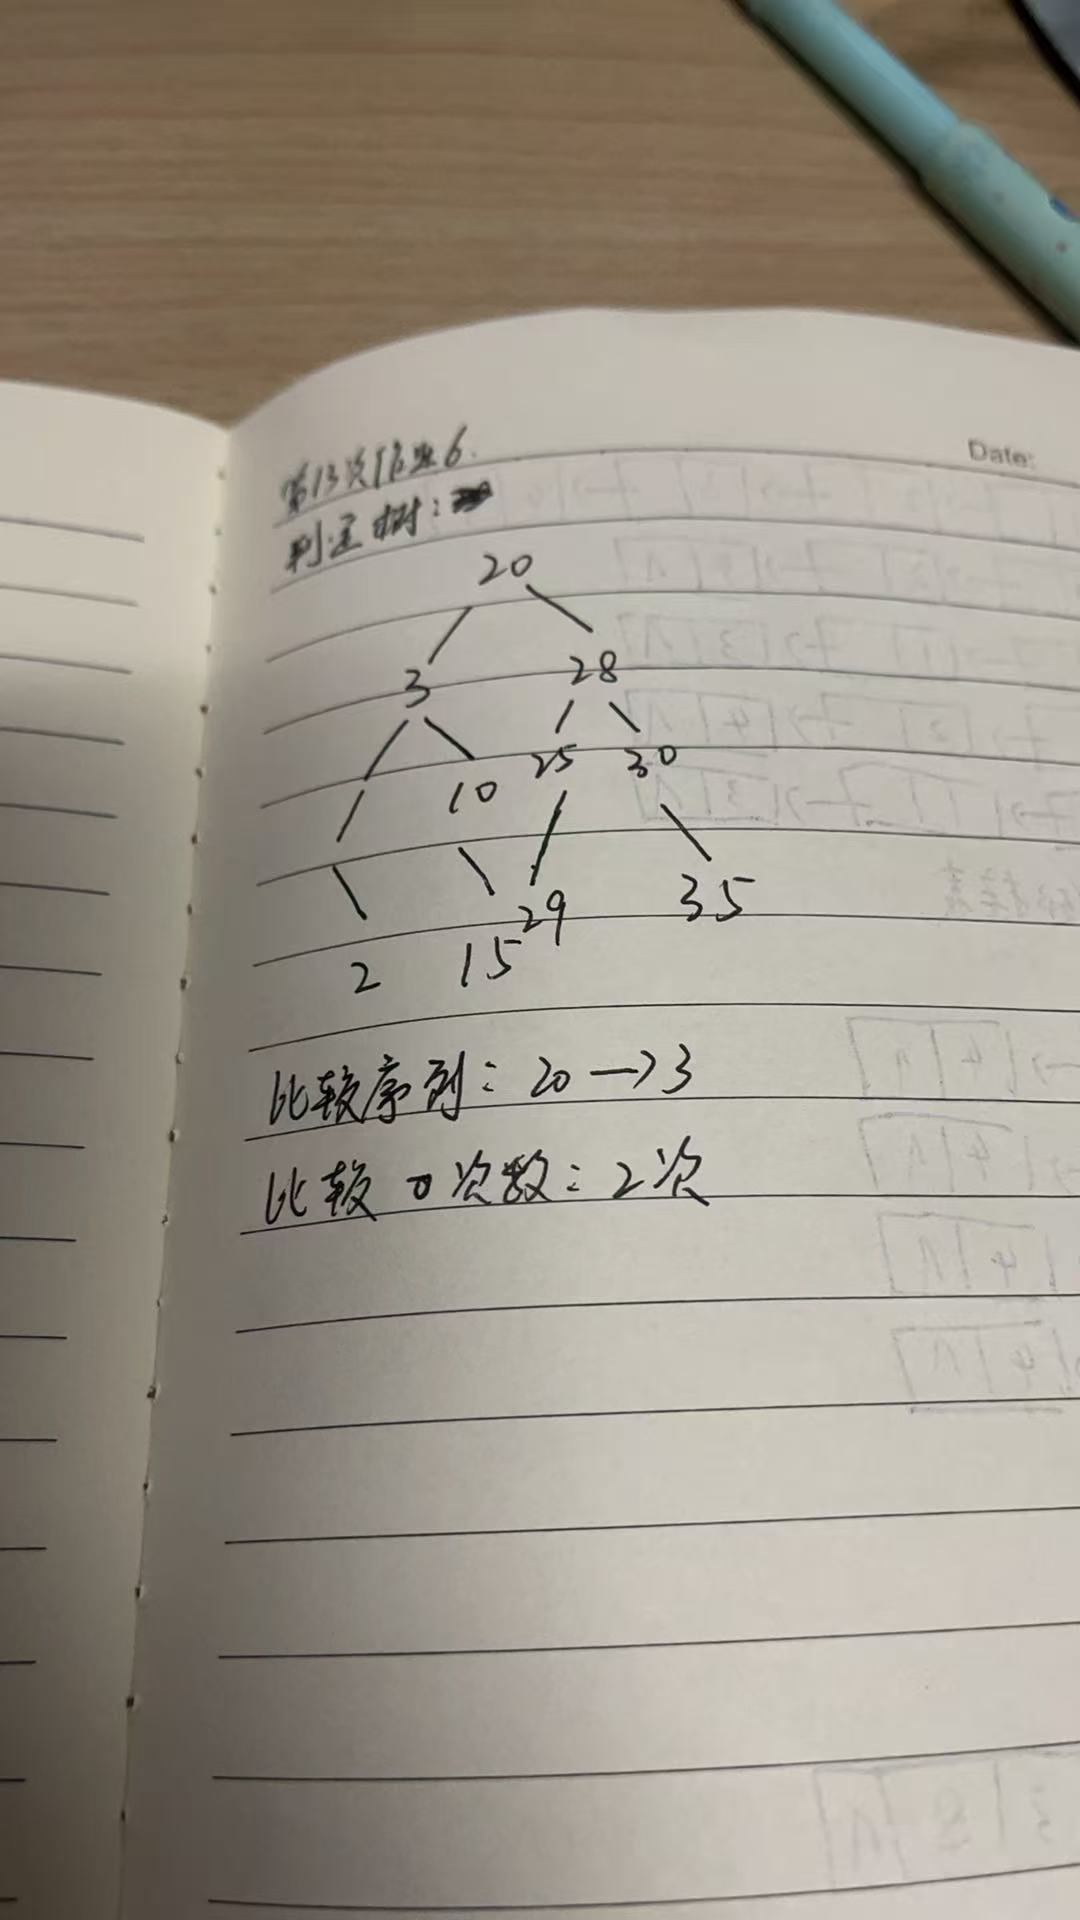 第13次作业6.
Date:
判定树:
20
3 28
10 25 30
1
2 15 29 35
比较序列: 20→3
比较 次数: 2次